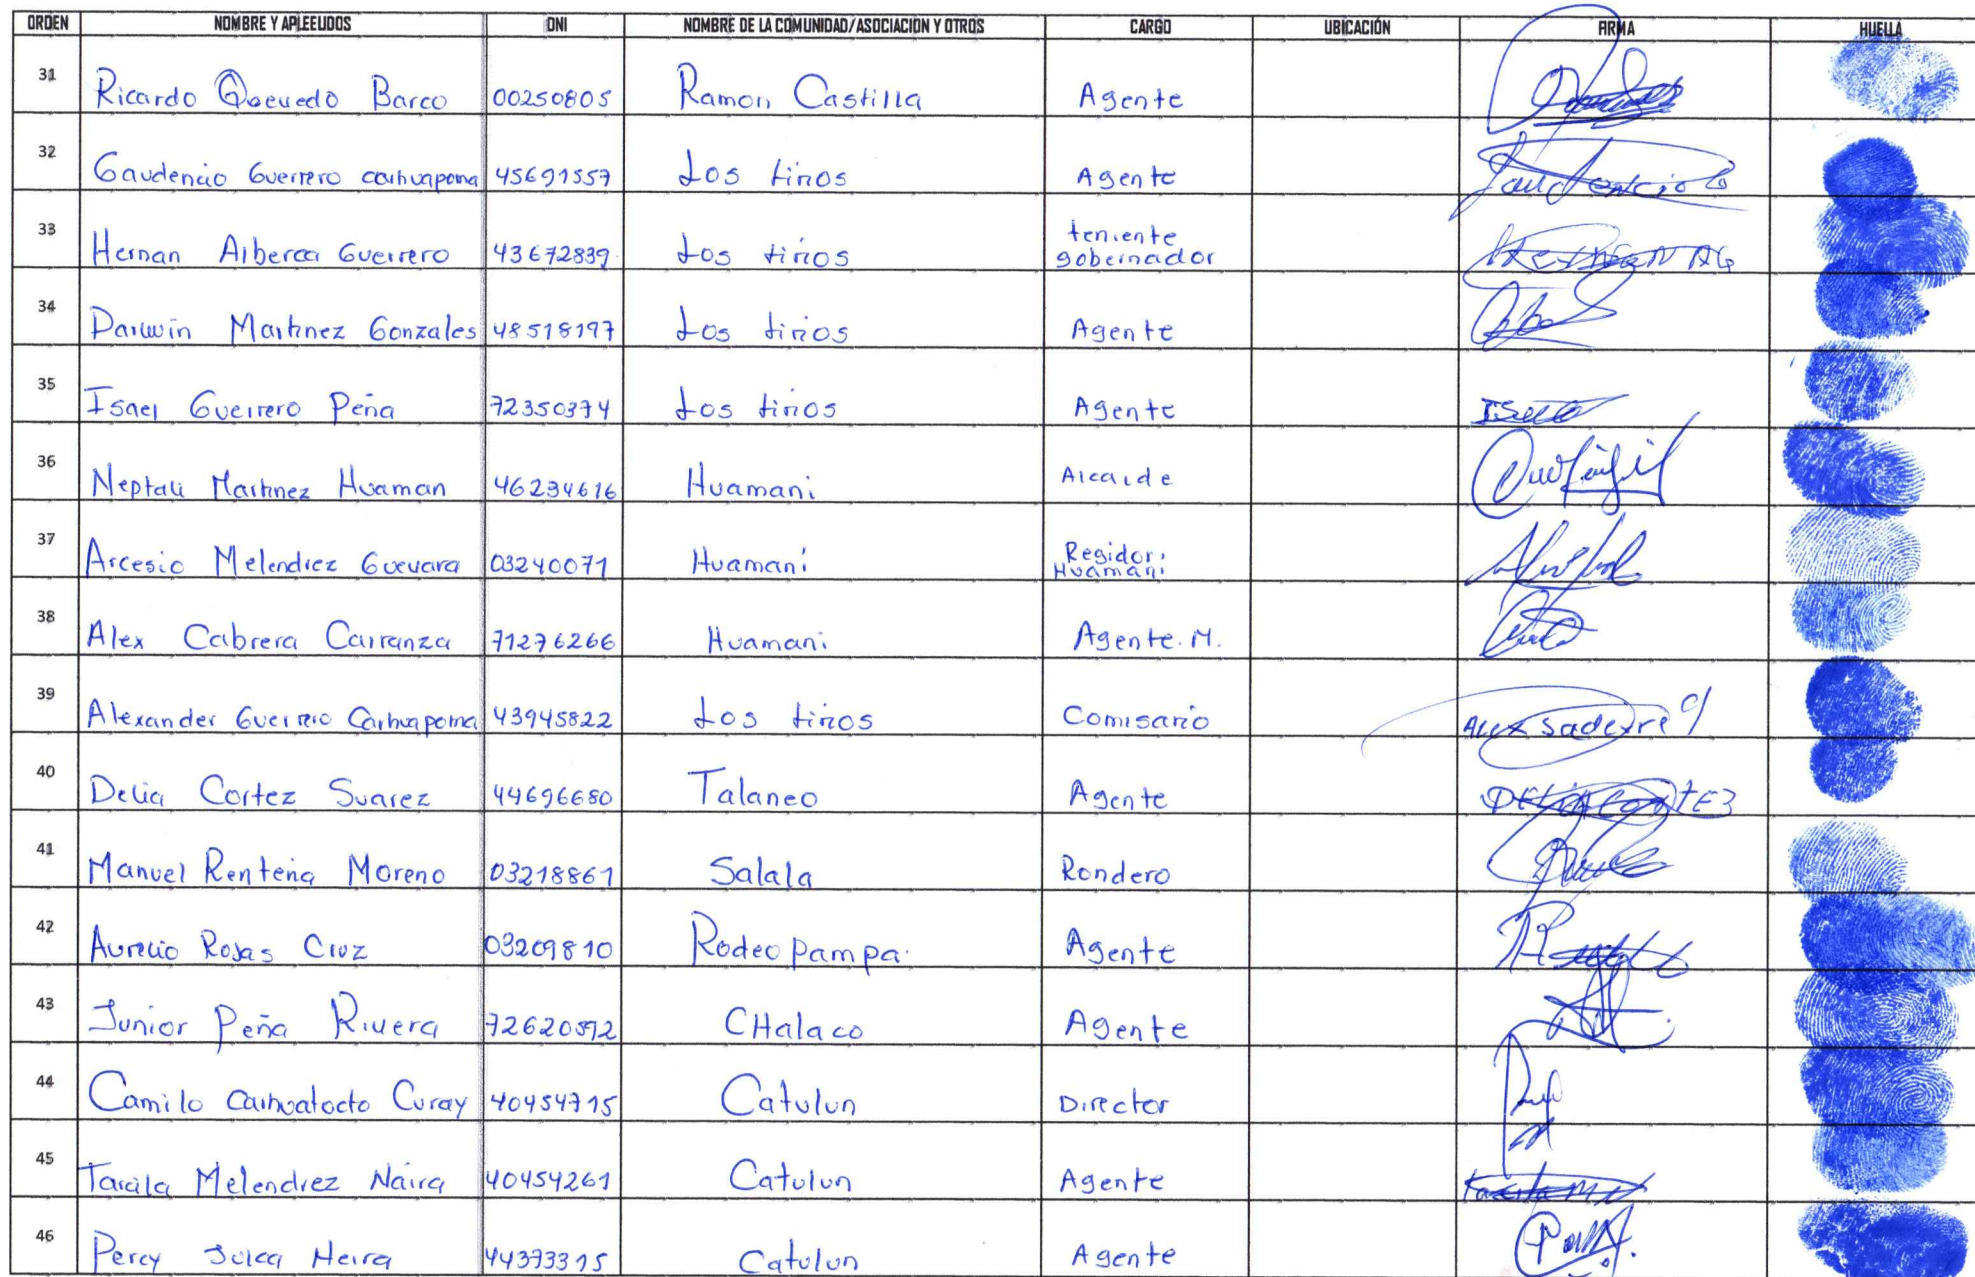 ORDEN NOMBRE Y APLEEUDOS DNI NOMBRE DE LA COMUNIDAD/ASOCIACION Y OTROS CARGO UBICACIÓN FIRMA HUELLA
31 Ricardo Quevedo Barco 00250805 Ramon Castilla Agente
32 Gaudencio Guerrero carhuapoma 45691557 Los tiños Agente
33 Hernan Alberca Guerrero 43672839 Los tiños teniente
gobernador
34 Darwin Martinez Gonzales 48518197 Los tiños Agente
35 Isael Guerrero Peña 72350374 Los tiños Agente
36 Neptali Martinez Huaman 46234616 Huamani Alcalde
37 Arcesio Melendrez Guevara 03240071 Huamaní Regidor
Huamani
38 Alex Cabrera Carranza 71276266 Huamani Agente. M.
39 Alexander Guerrero Carhuapoma 43945822 Los tiños Comisario
40 Delia Cortez Suarez 44696680 Talaneo Agente DELIA CORTEZ
41 Manuel Renteria Moreno 03218861 Salala Rondero
42 Aurelio Rojas Cruz 03209810 Rodeo pampa Agente
43 Junior Peña Rivera 72620592 CHalaco Agente
44 Camilo Carhuatocto Curay 40454715 Catulun Director
45 Melendrez Naira 40454261 Catulun Agente
46 Percy Julca Neira 44373315 Catulun Agente